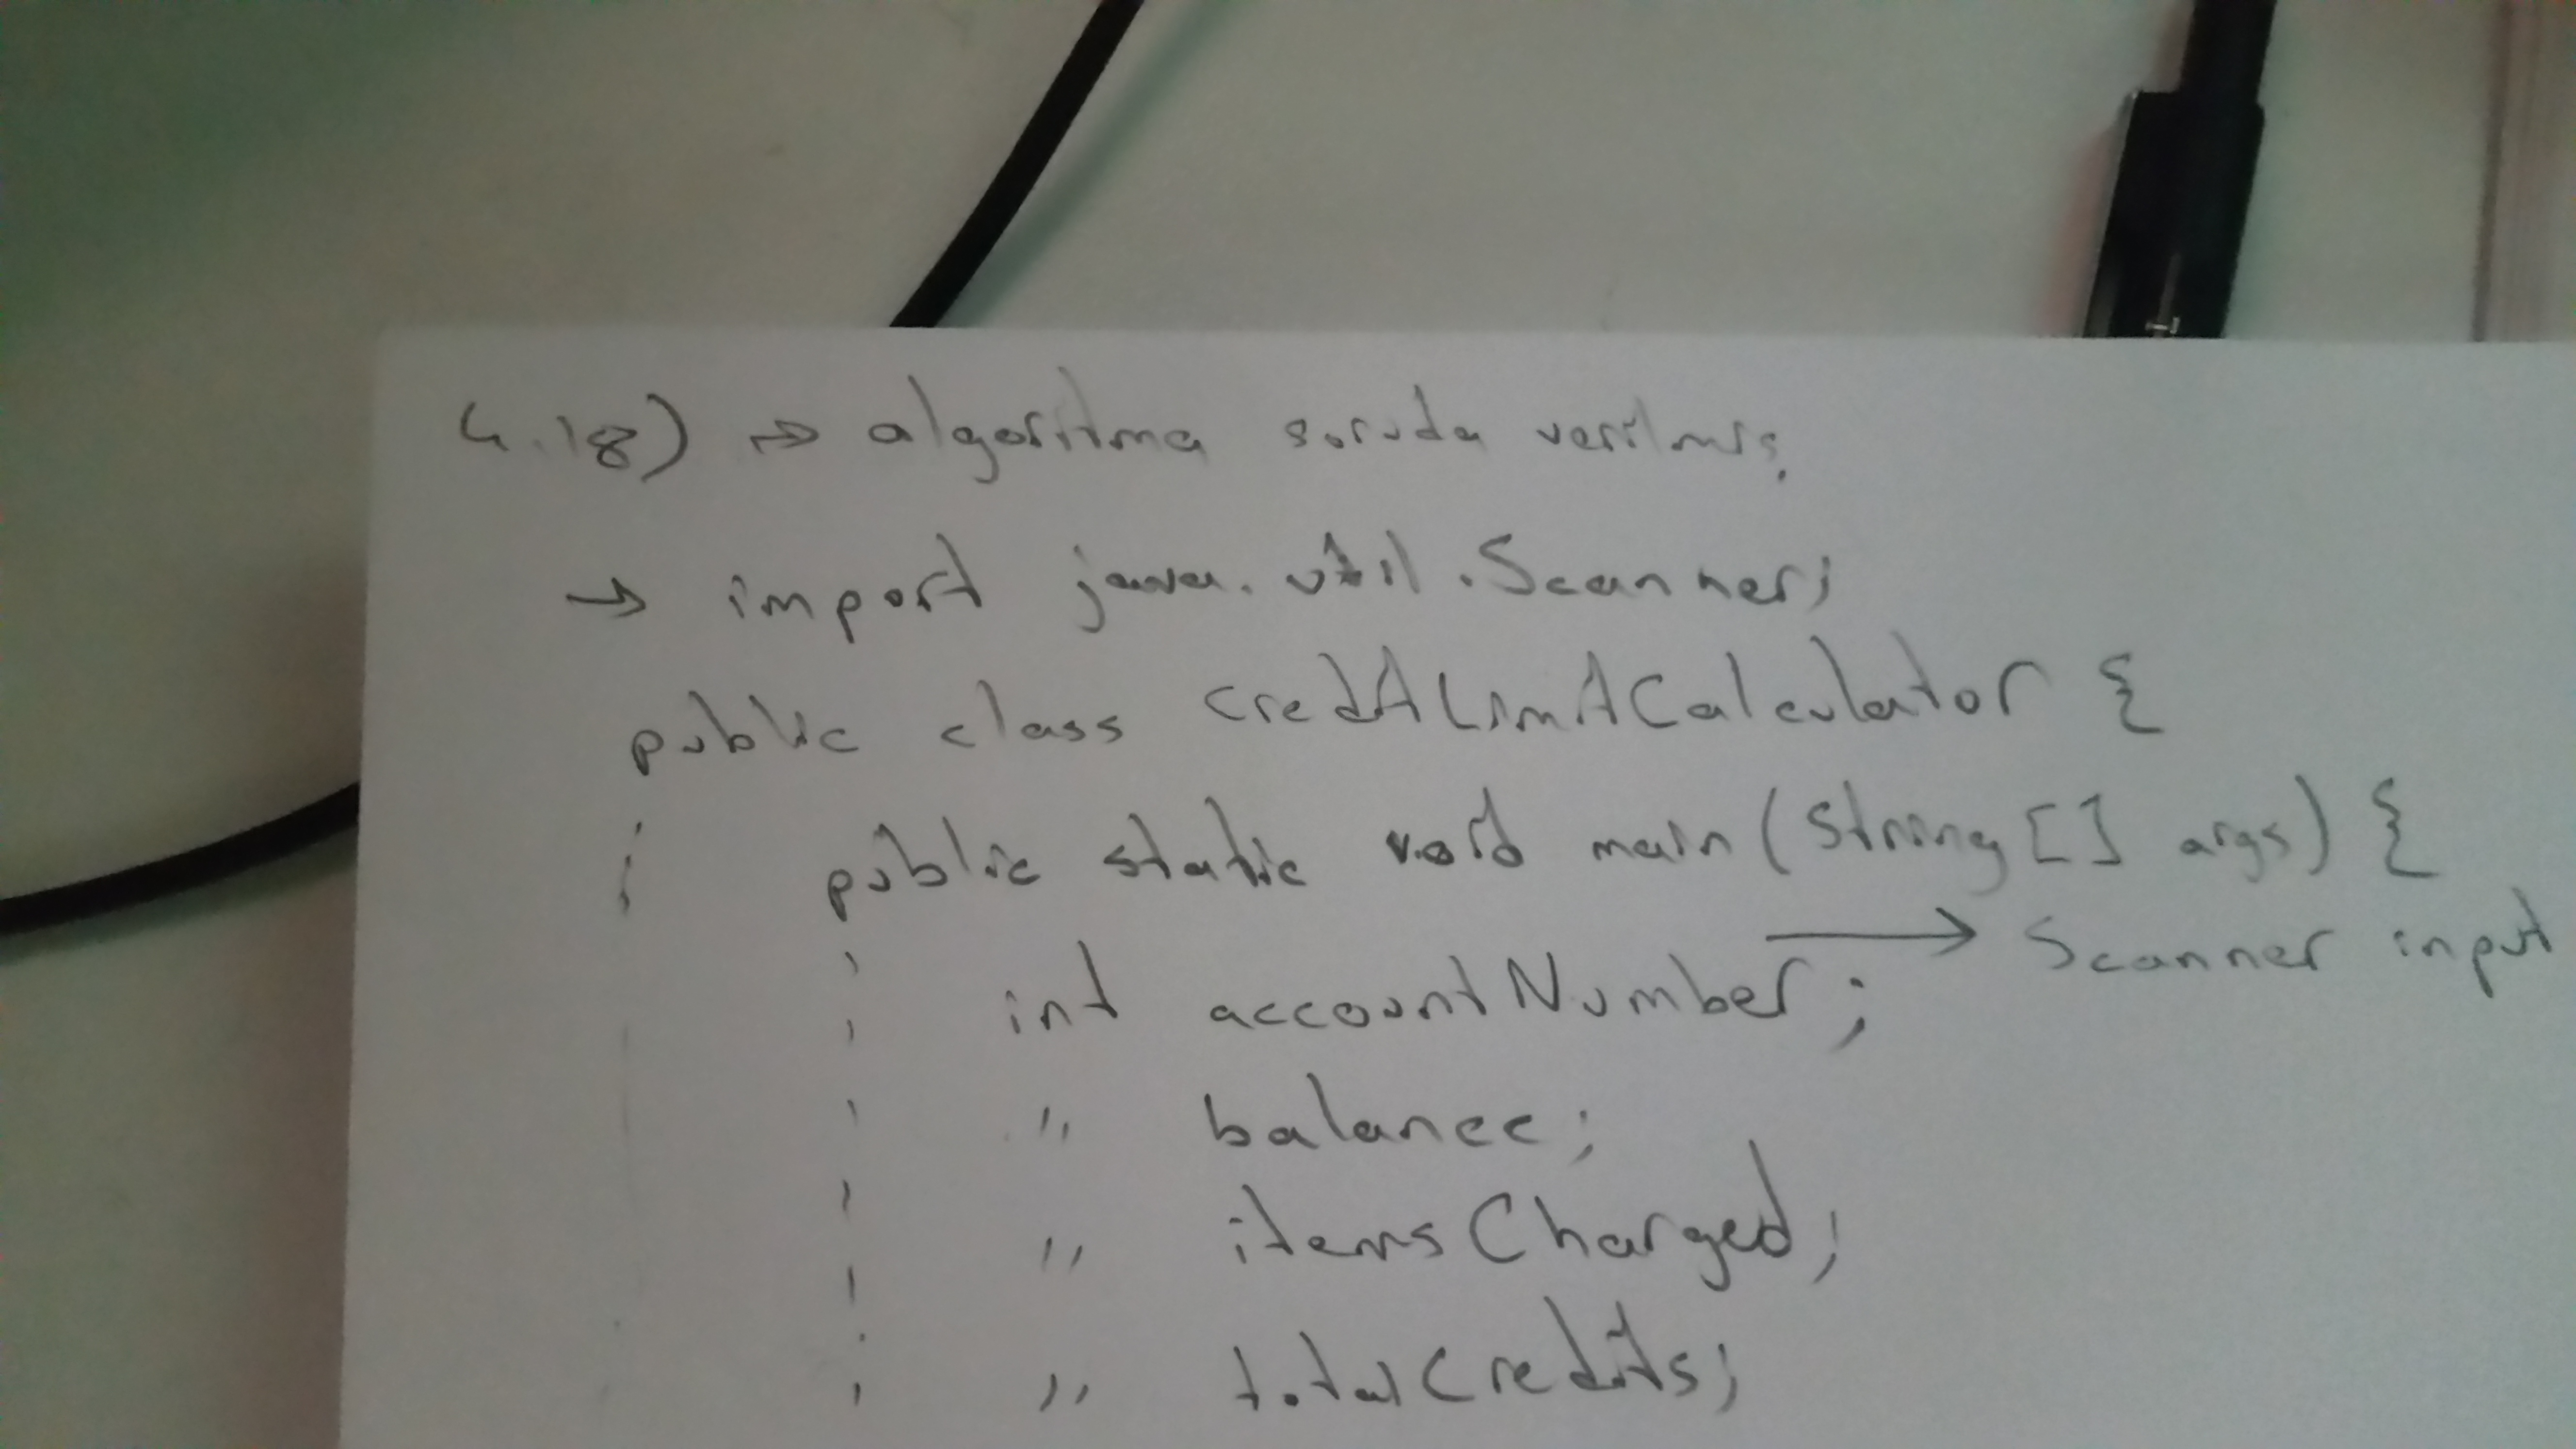 4.18) => algoritma soruda verilmiş.
-> import java.util.Scanner;
public class CreditLimitCalculator {
public static void main (String [] args) {
-> Scanner input
int accountNumber;
" balance;
" itemsCharged;
" totalCredits;